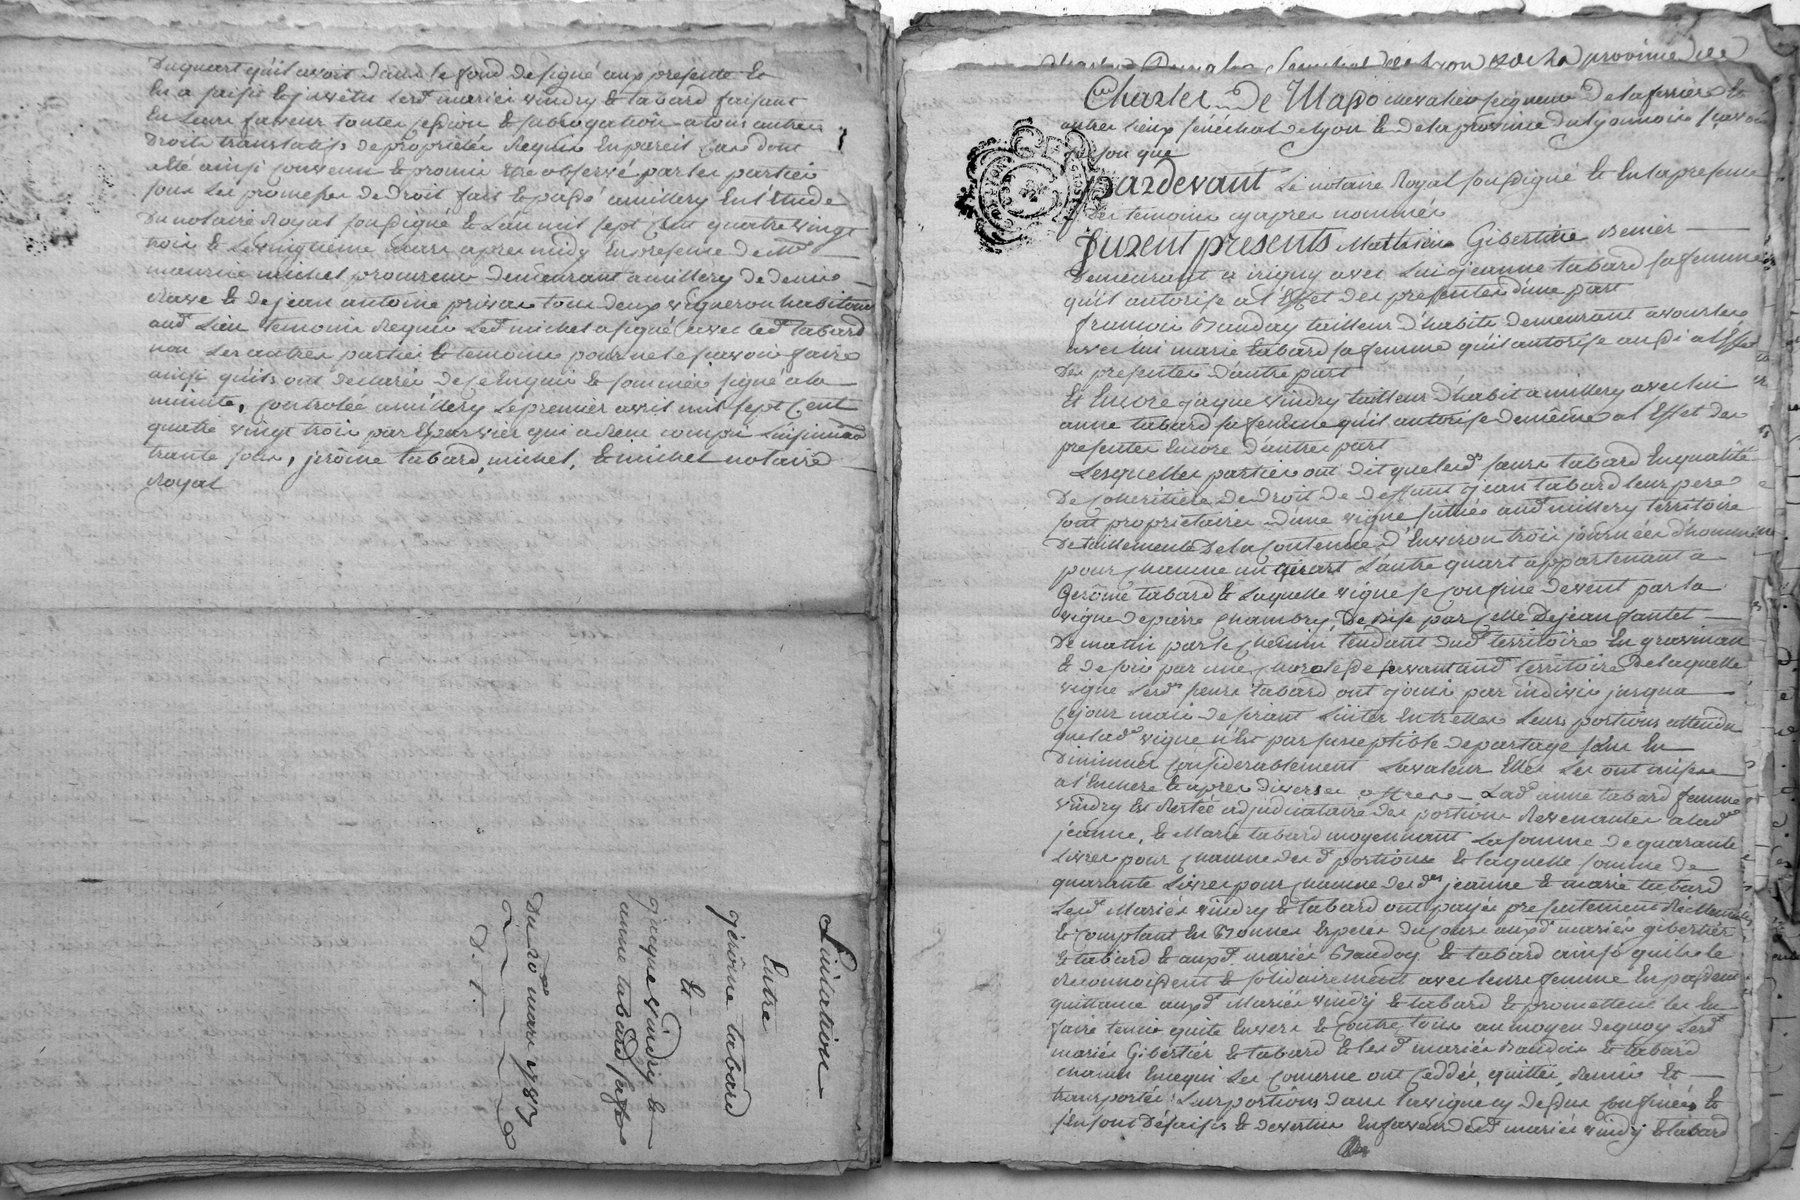 Duquart quil avoit dans le fond designé aux presente Et
En a saisi & invetu lesd. mariés vindry & tabard faisant
En leur faveur toutes cession & subrogation a tous autres
droits translatifs de propriétés Requis En pareil Cas dont
a été ainsi convenu & promis Etre observé par les parties
sous les promesses de droit fait & passé a millery En l'Etude
Du notaire Royal soussigné & L'an mil sept Cent quatre vingt
trois & Le vingtieme mars apres midy En presence de me.
maurice michel procureur demeurant a millery
& de jean antoine privas tous deux vigneron habitans
aud. Lieu temoins Requis Led. michel a signé avec led. tabard
non Les autres parties & temoins pour ne le sçavoir faire
ainsi quils ont declarés de ce Enquis & sommés signé a la
minute, Controlée a millery Le premier avril mil sept Cent
quatre vingt trois par Epervier qui a Reçu compris L'insinuaon
trante sous, jerôme tabard, michel, & michel notaire
Royal
Licitation
Entre
gérôme tabard
Et
jacque vindry &
anne tabard sa fe.
Du 20e. mars 1783
D. t.
Charles de Masso chevalier seigneur De la ferriere &
autres Lieux sénéchal de lyon & de la province du lyonnois sçavoir
faison que
pardevant Le notaire Royal soussigné & En la presence
des temoins cy apres nommés
furent presents Mathieu Gibertier
demeurant a irigny avec Lui jeanne tabard sa femme
quil autorise a l'Effet des presentes d'une part
francois Bauday tailleur d'habits demeurant a vourles
avec lui marie tabard sa femme quil autorise aussi a l'Effet
des presentes d'autre part
Et Encore jaque vindry tailleur d'habit a millery avec lui
anne tabard sa femme quil autorise de même a l'Effet des
presentes Encore d'autre part
Lesquelles parties ont dit que lesd. sœurs tabard En qualité
De Coheritiere de droit de deffunt jean tabard leur pere
sont proprietaires d'une vigne situeé aud. millery territoire
De la Contenue d'Environ trois journées d'homme
pour chacune un quart L'autre quart appartenant a
Gerôme tabard & Laquelle vigne se Confine de vent par la
vigne de pierre Chambry, De bise par Celle De jean fantet
De matin par le Chemin tendant dud. territoire En gravinan
& de soir par une servant aud. territoire De laquelle
vigne Lesd. sœurs tabard ont joui par indivis jusqua
Ce jour mais desirant Liciter Entrelles Leurs portions attendu
que lad. vigne n'Est pas susceptible de partage sans En
Diminuer Considerablement La valeur Elles Les ont mises
a l'Enchere & apres diverses offres Lad. anne tabard femme
vindry Est Restée adjudicataire des portions Revenantes a lad.
jeanne, & Marie tabard moyennant La somme de quarante
Livres pour chacune desd. portions & laquelle somme de
quarante Livres pour chacune desd. jeanne & marie tabard
Lesd. Mariés vindry & tabard ont payés presentement Réellement
& Comptant En Bonnes Especes du cours auxd. mariés gibertier
& tabard & auxd. mariés Bauday & tabard ainsi quils le
Reconnoissent & solidairement avec leurs femme En passent
quittance auxd. Mariés vindry & tabard & promettent les En
faire tenir quite Envers & Contre tous au moyen de quoy Lesd.
mariés Gibertier & tabard & lesd. mariés Baudois & tabard
chacun Encequi Les Concerne ont Ceddés, quittés, Remis &
transportés Leurs portions dans la vigne cy dessus Confinées &
s'En sont Désaisis & devetus En faveur desd. mariés vindry & tabard